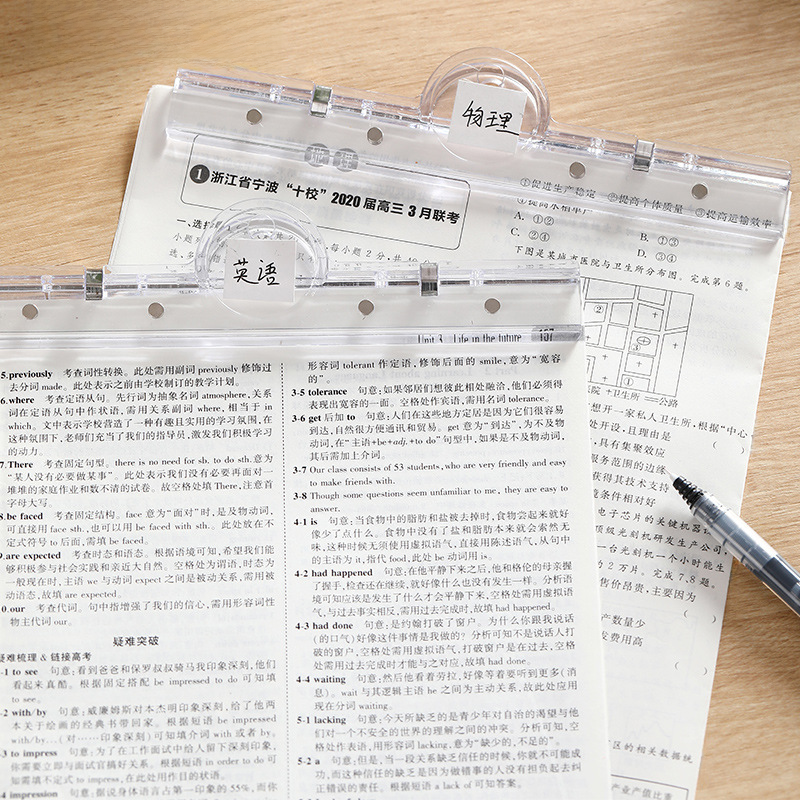 物理
地理
1 浙江省宁波“十校”2020届高三3月联考
一、选择
小题 每小题2分,共
选,多
①促进生产稳定 ②提高个体质量 ③提高运输效率
A. ①② B. ①③
C. ②④ D. ③④
下图是某城市医院与卫生所分布图。完成第6题。
院 +卫生所 ══公路
想开一家私人卫生所,根据“中心
处开设,且理由是
,具有集聚效应
服务范围的边缘
获得其技术支持
境条件相对好
电子芯片的关键机器
顶级光刻机研发生产公司
一台光刻机一个小时能生
2万片。完成7、8题。
售价昂贵,主要因为
产数量少
发费用高
区的相关数据统
产业产值比重
英语
Unit 3 Life in the future 157
5.previously 考查词性转换。此处需用副词 previously 修饰过
去分词 made。此处表示之前由学校制订的教学计划。
6.where 考查定语从句。先行词为抽象名词 atmosphere,关系
词在定语从句中作状语,需用关系副词 where,相当于 in
which。文中表示学校营造了一种有趣且实用的学习氛围,在
这种氛围下,老师们充当了我们的指导员,激发我们积极学习
的动力。
7.There 考查固定句型。there is no need for sb. to do sth.意为
“某人没有必要做某事”。此处表示我们没有必要再面对一
堆堆的家庭作业和数不清的试卷。故空格处填 There,注意首
字母大写。
8.be faced 考查固定结构。face 意为“面对”时,是及物动词,
可直接用 face sth.,也可以用 be faced with sth.。此处放在不
定式符号 to 后面,需填 be faced。
9.are expected 考查时态和语态。根据语境可知,希望我们能
够积极参与社会实践和亲近大自然。空格处为谓语,时态为
一般现在时,主语 we 与动词 expect 之间是被动关系,需用被
动语态,故填 are expected。
0.our 考查代词。句中指增强了我们的信心,需用形容词性
物主代词 our。
疑难突破
疑难梳理 & 链接高考
-1 to see 句意:看到爸爸和保罗叔叔骑马我印象深刻,他们
看起来真酷。根据固定搭配 be impressed to do 可知填
to see。
-2 with/by 句意:威廉姆斯对本杰明印象深刻,给了他两
本关于绘画的经典书带回家。根据短语 be impressed
with/by...(对……印象深刻)可知填介词 with 或者 by。
-3 to impress 句意:为了在工作面试中给人留下深刻印象,
你需要立即与面试官搞好关系。根据短语 in order to do 可
知需填不定式 to impress,在此处用作目的状语。
-4 impression 句意:据说身体语言占第一印象的55%,而你
形容词 tolerant 作定语,修饰后面的 smile,意为“宽容
的”。
3-5 tolerance 句意:如果邻居们想彼此相处融洽,他们必须得
表现出宽容的一面。空格处作宾语,需用名词 tolerance。
3-6 get 后加 to 句意:人们在这些地方定居是因为它们很容易
到达,自然很方便通讯和贸易。get 意为“到达”,为不及物
动词,在“主语+be+adj.+to do”句型中,如果是不及物动词,
其后需加上介词。
3-7 Our class consists of 53 students, who are very friendly and
easy to make friends with.
3-8 Though some questions seem unfamiliar to me, they are easy to
answer.
4-1 is 句意:当食物中的脂肪和盐被去掉时,食物尝起来就好
像少了点什么。食物中没有了盐和脂肪本来就会索然无
味,这种时候无须使用虚拟语气,直接用陈述语气,从句中
的主语为 it,指代 food,此处 be 动词用 is。
4-2 had happened 句意:在他平静下来之后,他和格伦的母亲握
了握手,检查还在继续,就好像什么也没有发生一样。分析语
境可知应该是发生了什么才会平静下来,空格处需用虚拟语
气,与过去事实相反,需用过去完成时,故填 had happened。
4-3 had done 句意:是约翰打破了窗户。为什么你跟我说话
(的口气)好像这件事情是我做的?分析可知不是说话人打
破的窗户,空格处需用虚拟语气,打破窗户是在过去,空格
处需用过去完成时才能与之对应,故填 had done。
4-4 waiting 句意:然后他看着劳拉,好像等着要听到更多(消
息)。wait 与其逻辑主语 he 之间为主动关系,故此处应用
现在分词 waiting。
5-1 lacking 句意:今天所缺乏的是青少年对自治的渴望与他
们对一个不安全的世界的理解之间的冲突。分析可知,空
格处作表语,用形容词 lacking,意为“缺少的,不足的”。
5-2 a 句意:但是,当一段关系缺乏信任的时候,你就不可能成
功,而这种信任的缺乏是因为做错事的人没有担负起去纠
正错误的责任。根据短语 a lack of 可知答案。